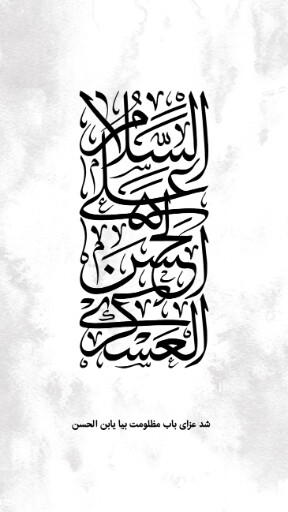 السلام
علی
الحسن
العسکری
شد عزای باب مظلومت بیا یابن الحسن